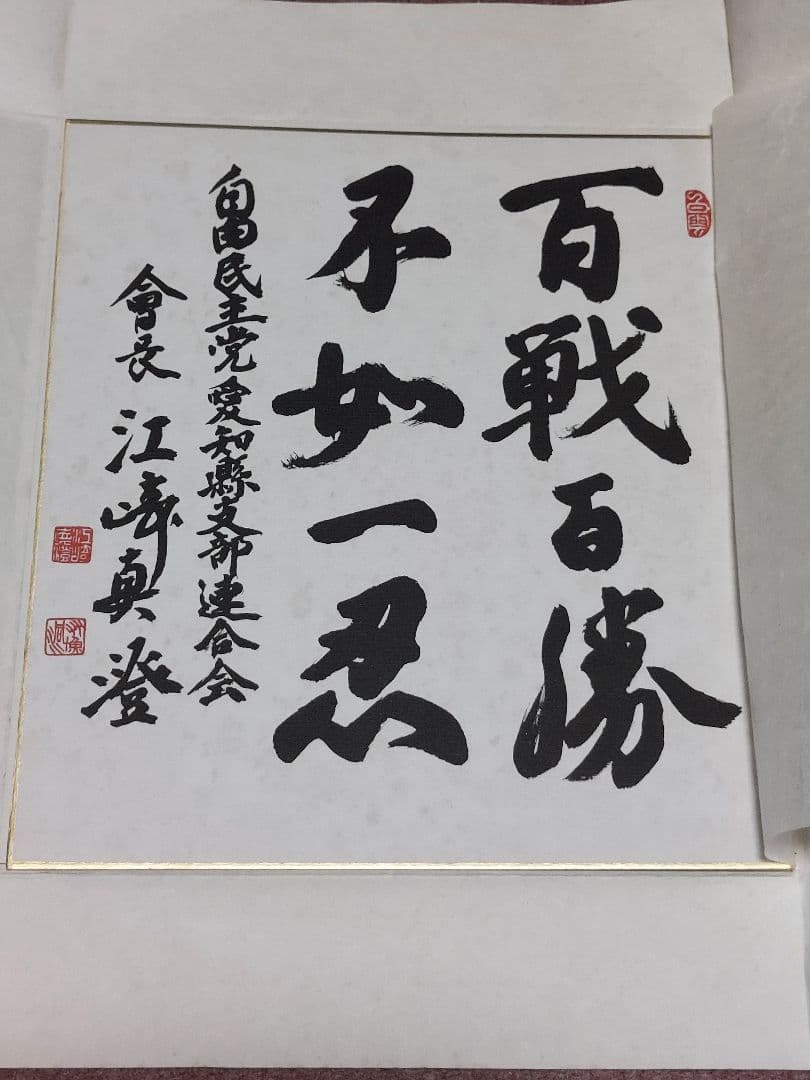 百戦百勝
不如一忍
自由民主党愛知縣支部連合会
會長 江﨑真澄